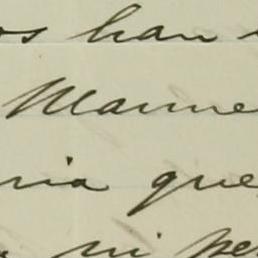 os han
Manue
ria que
ni pe